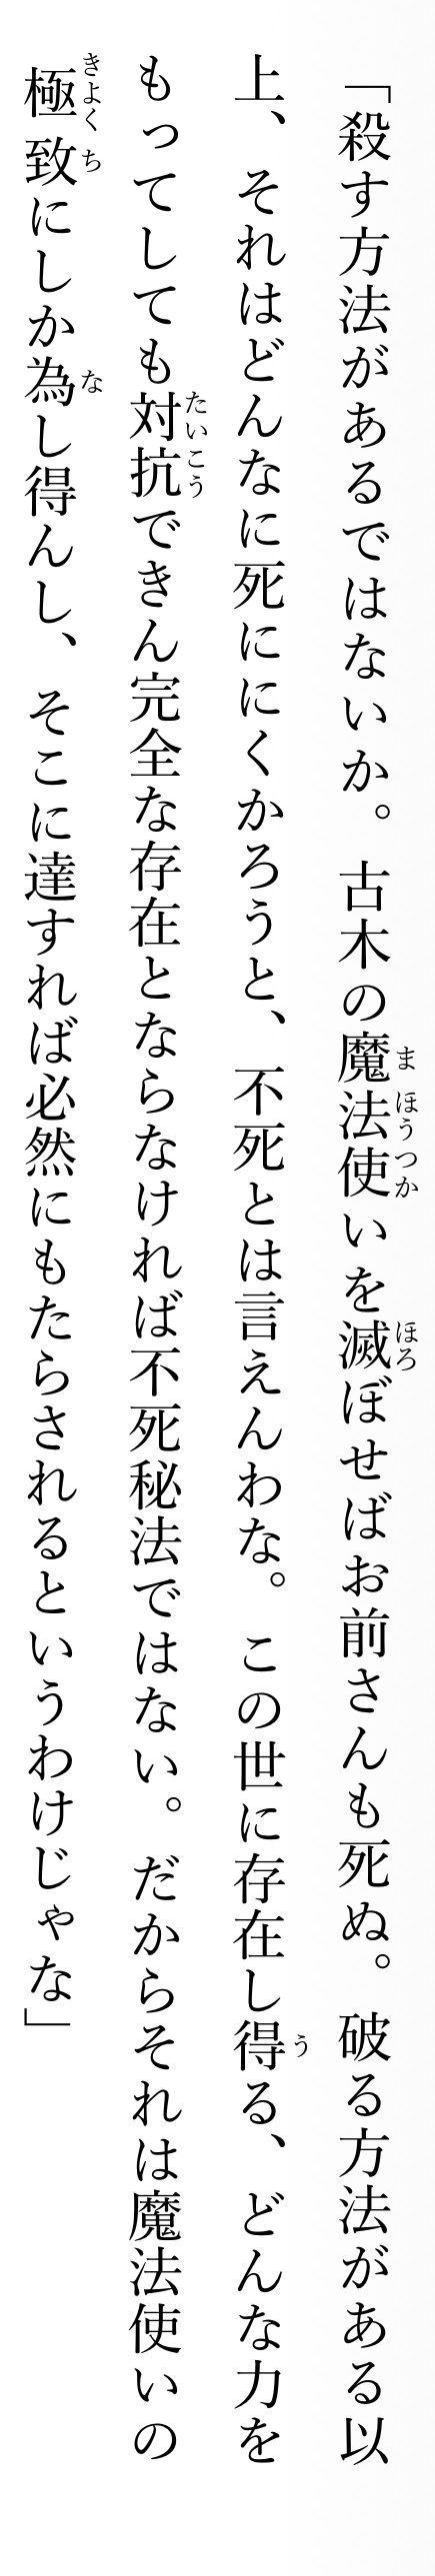 「殺す方法があるではないか。古木の魔法使いを滅ぼせばお前さんも死ぬ。破る方法がある以
上、それはどんなに死ににくかろうと、不死とは言えんわな。この世に存在し得る、どんな力を
もってしても対抗できん完全な存在とならなければ不死秘法ではない。だからそれは魔法使いの
極致にしか為し得んし、そこに達すれば必然にもたらされるというわけじゃな」